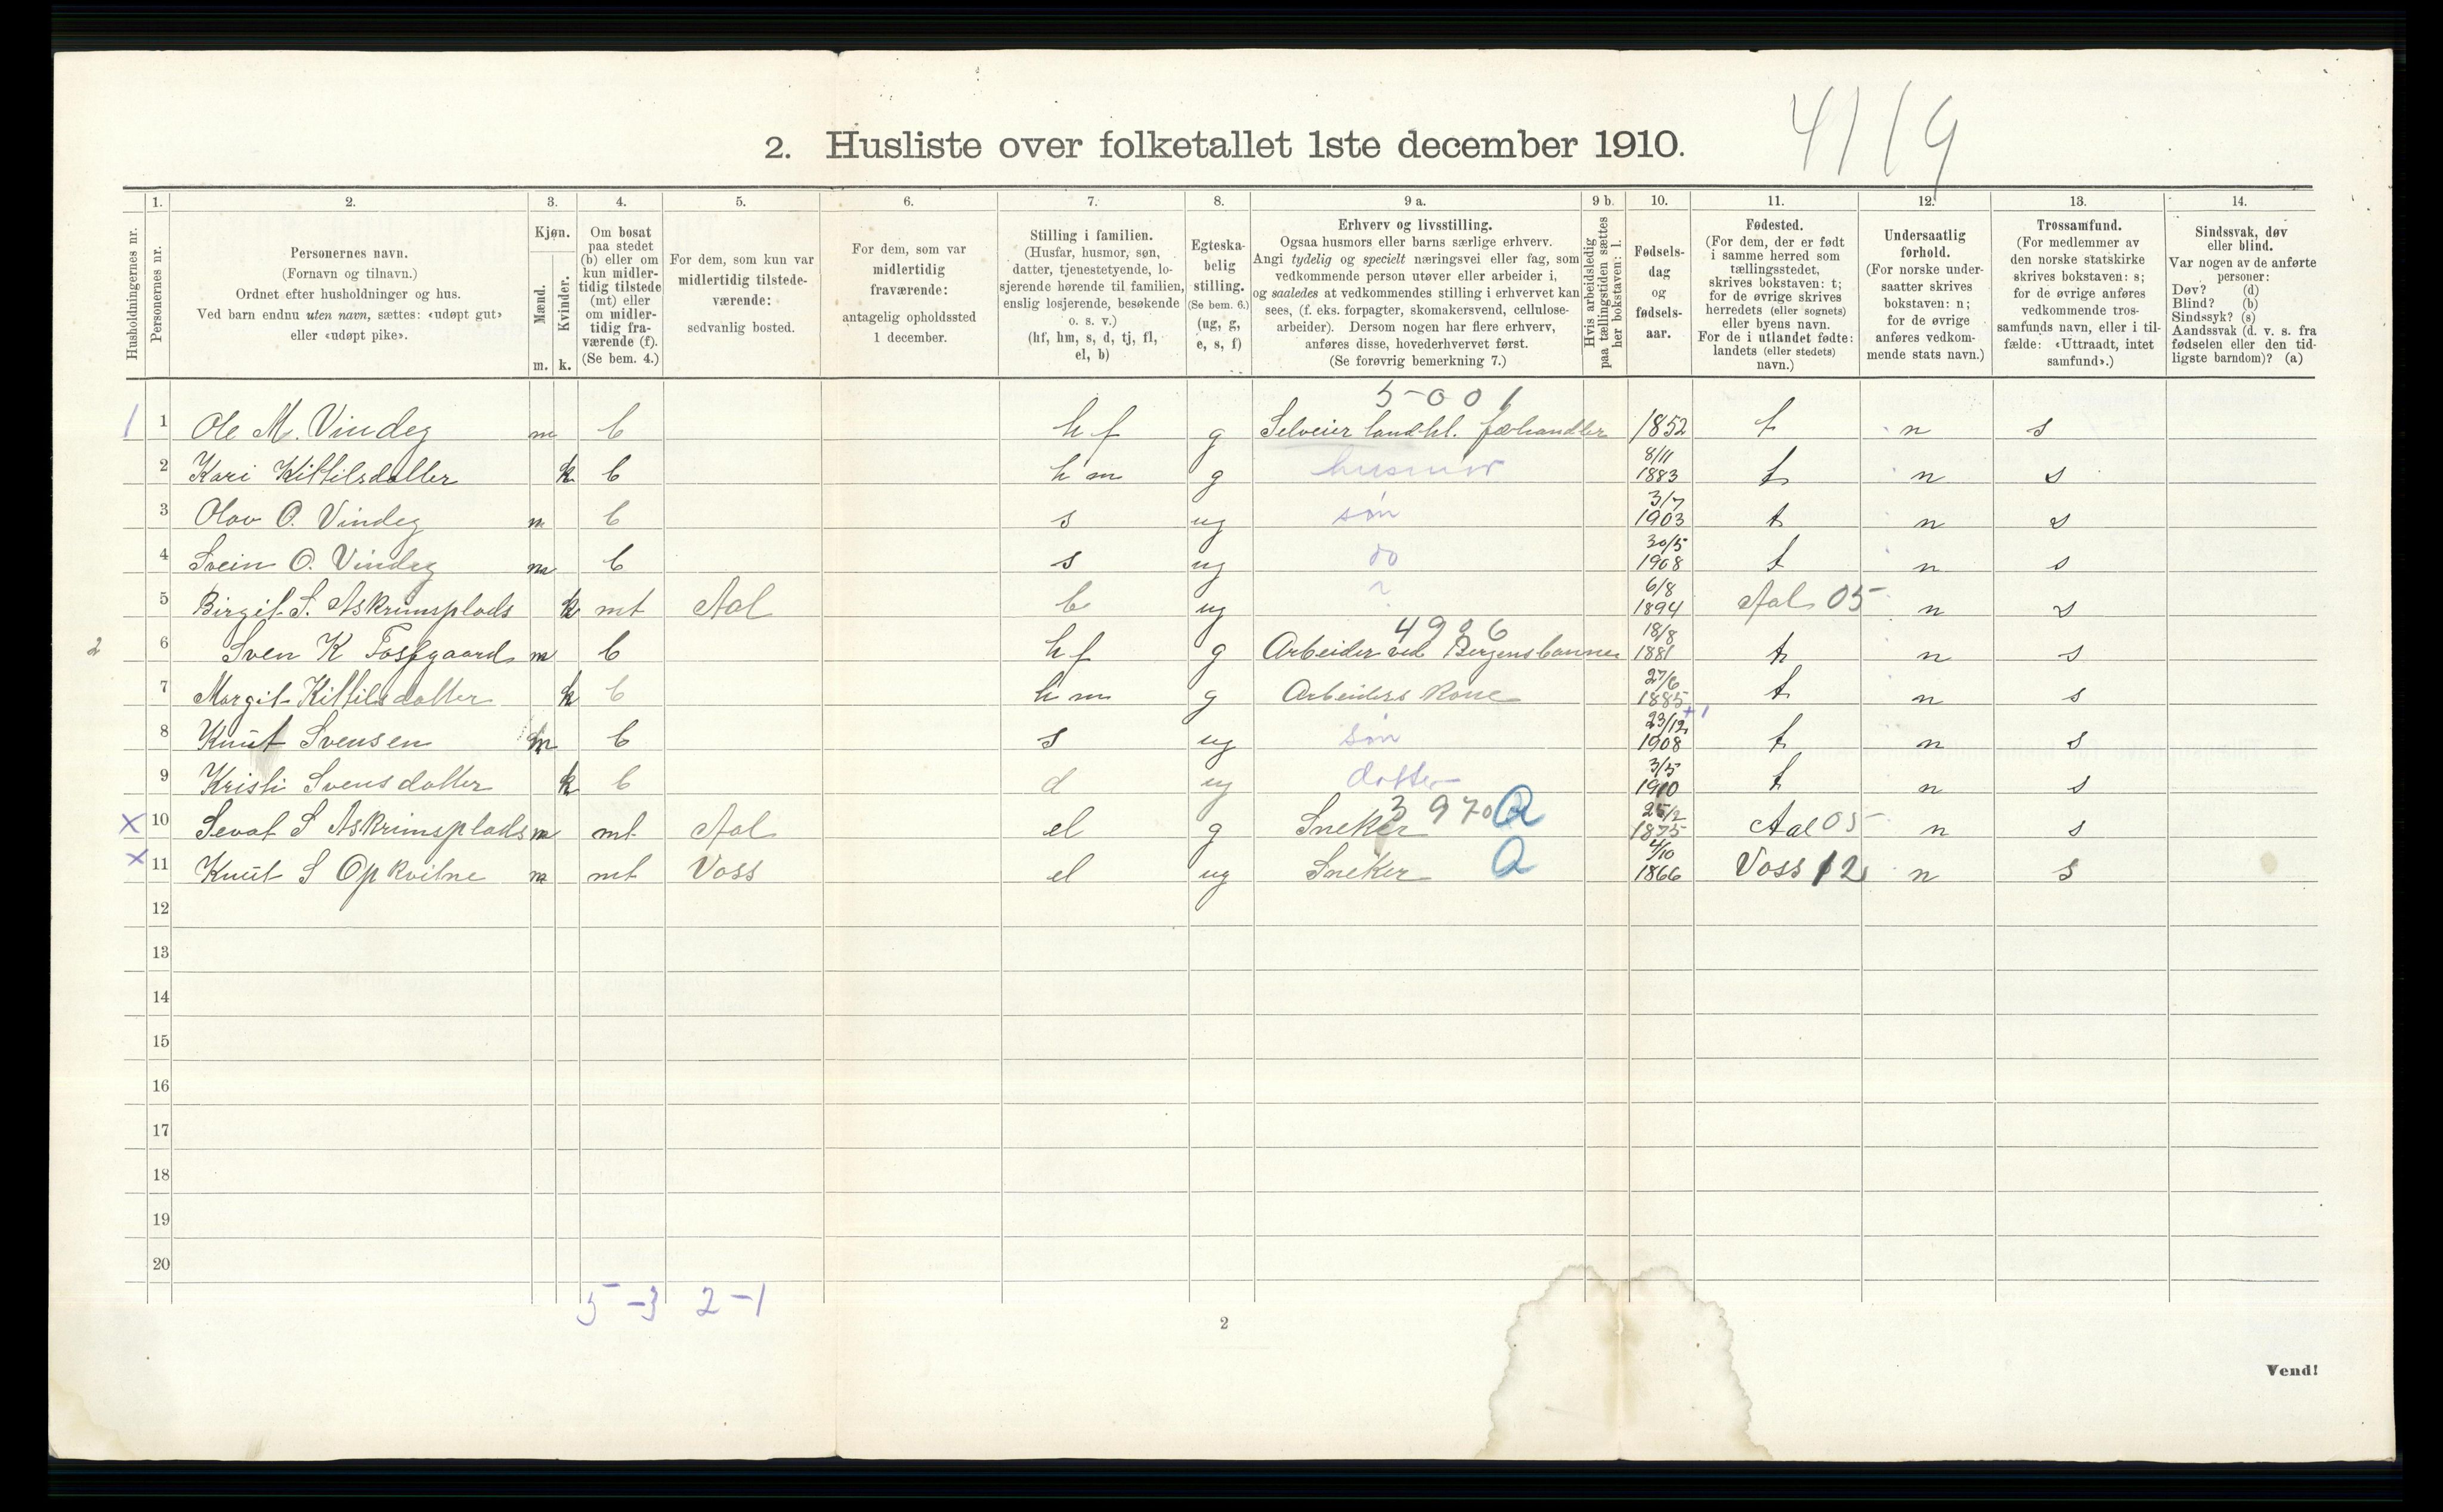 4119
2. Husliste over folketallet 1ste december 1910.
Husholdningernes nr.
1. Personernes nr.
2. Personernes navn. (Fornavn og tilnavn.) Ordnet efter husholdninger og hus. Ved barn endnu uten navn, sættes: «udøpt gut» eller «udøpt pike».
3. Kjøn. Mænd. m. Kvinder. k.
4. Om bosat paa stedet (b) eller om kun midlertidig tilstede (mt) eller om midlertidig fraværende (f). (Se bem. 4.)
5. For dem, som kun var midlertidig tilstedeværende: sedvanlig bosted.
6. For dem, som var midlertidig fraværende: antagelig opholdssted 1 december.
7. Stilling i familien. (Husfar, husmor, søn, datter, tjenestetyende, losjerende hørende til familien, enslig losjerende, besøkende o. s. v.) (hf, hm, s, d, tj, fl, el, b)
8. Egteskabelig stilling. (Se bem. 6.) (ug, g, e, s, f)
9 a. Erhverv og livsstilling. Ogsaa husmors eller barns særlige erhverv. Angi tydelig og specielt næringsvei eller fag, som vedkommende person utøver eller arbeider i, og saaledes at vedkommendes stilling i erhvervet kan sees, (f. eks. forpagter, skomakersvend, cellulosearbeider). Dersom nogen har flere erhverv, anføres disse, hovederhvervet først. (Se forøvrig bemerkning 7.)
9 b. Hvis arbeidsledig paa tællingstiden sættes her bokstaven: l.
10. Fødselsdag og fødselsaar.
11. Fødested. (For dem, der er født i samme herred som tællingsstedet, skrives bokstaven: t; for de øvrige skrives herredets (eller sognets) eller byens navn. For de i utlandet fødte: landets (eller stedets) navn.)
12. Undersaatlig forhold. (For norske undersaatter skrives bokstaven: n; for de øvrige anføres vedkommende stats navn.)
13. Trossamfund. (For medlemmer av den norske statskirke skrives bokstaven: s; for de øvrige anføres vedkommende trossamfunds navn, eller i tilfælde: «Uttraadt, intet samfund».)
14. Sindssvak, døv eller blind. Var nogen av de anførte personer: Døv? (d) Blind? (b) Sindssyk? (s) Aandssvak (d. v. s. fra fødselen eller den tidligste barndom)? (a)
5-001
1 1 Ole M. Vindeg m b hf g Selveier landhl. fæhandler 1852 t n s
2 Kari Kittilsdatter k b hm g husmor 8/11 1883 t n s
3 Olav O. Vindeg m b s ug søn 3/7 1903 t n s
4 Svein O. Vindeg m b s ug do 30/5 1908 t n s
5 Birgit S. Askrimsplads k mt Aal b ug ? 6/8 1894 Aal 05 n s
2 6 Sven K Fossgaard m b hf g Arbeider ved Bergensbannen 18/8 1881 t n s
7 Margit Kittilsdatter k b hm g Arbeiders kone 27/6 1885 t n s
8 Knut Svensen m b s ug søn 23/12 1908 +1 t n s
9 Kristi Svensdatter k b d ug datter 3/5 1910 t n s
3970 Q
X 10 Sevat S Askrimsplads m mt Aal el g Sneker 25/2 1875 Aal 05 n s
X 11 Knut S Opkvitne m mt Voss el ug Sneker Q 4/10 1866 Voss 12 n s
12
13
14
15
16
17
18
19
20
5-3 2-1
2
Vend!